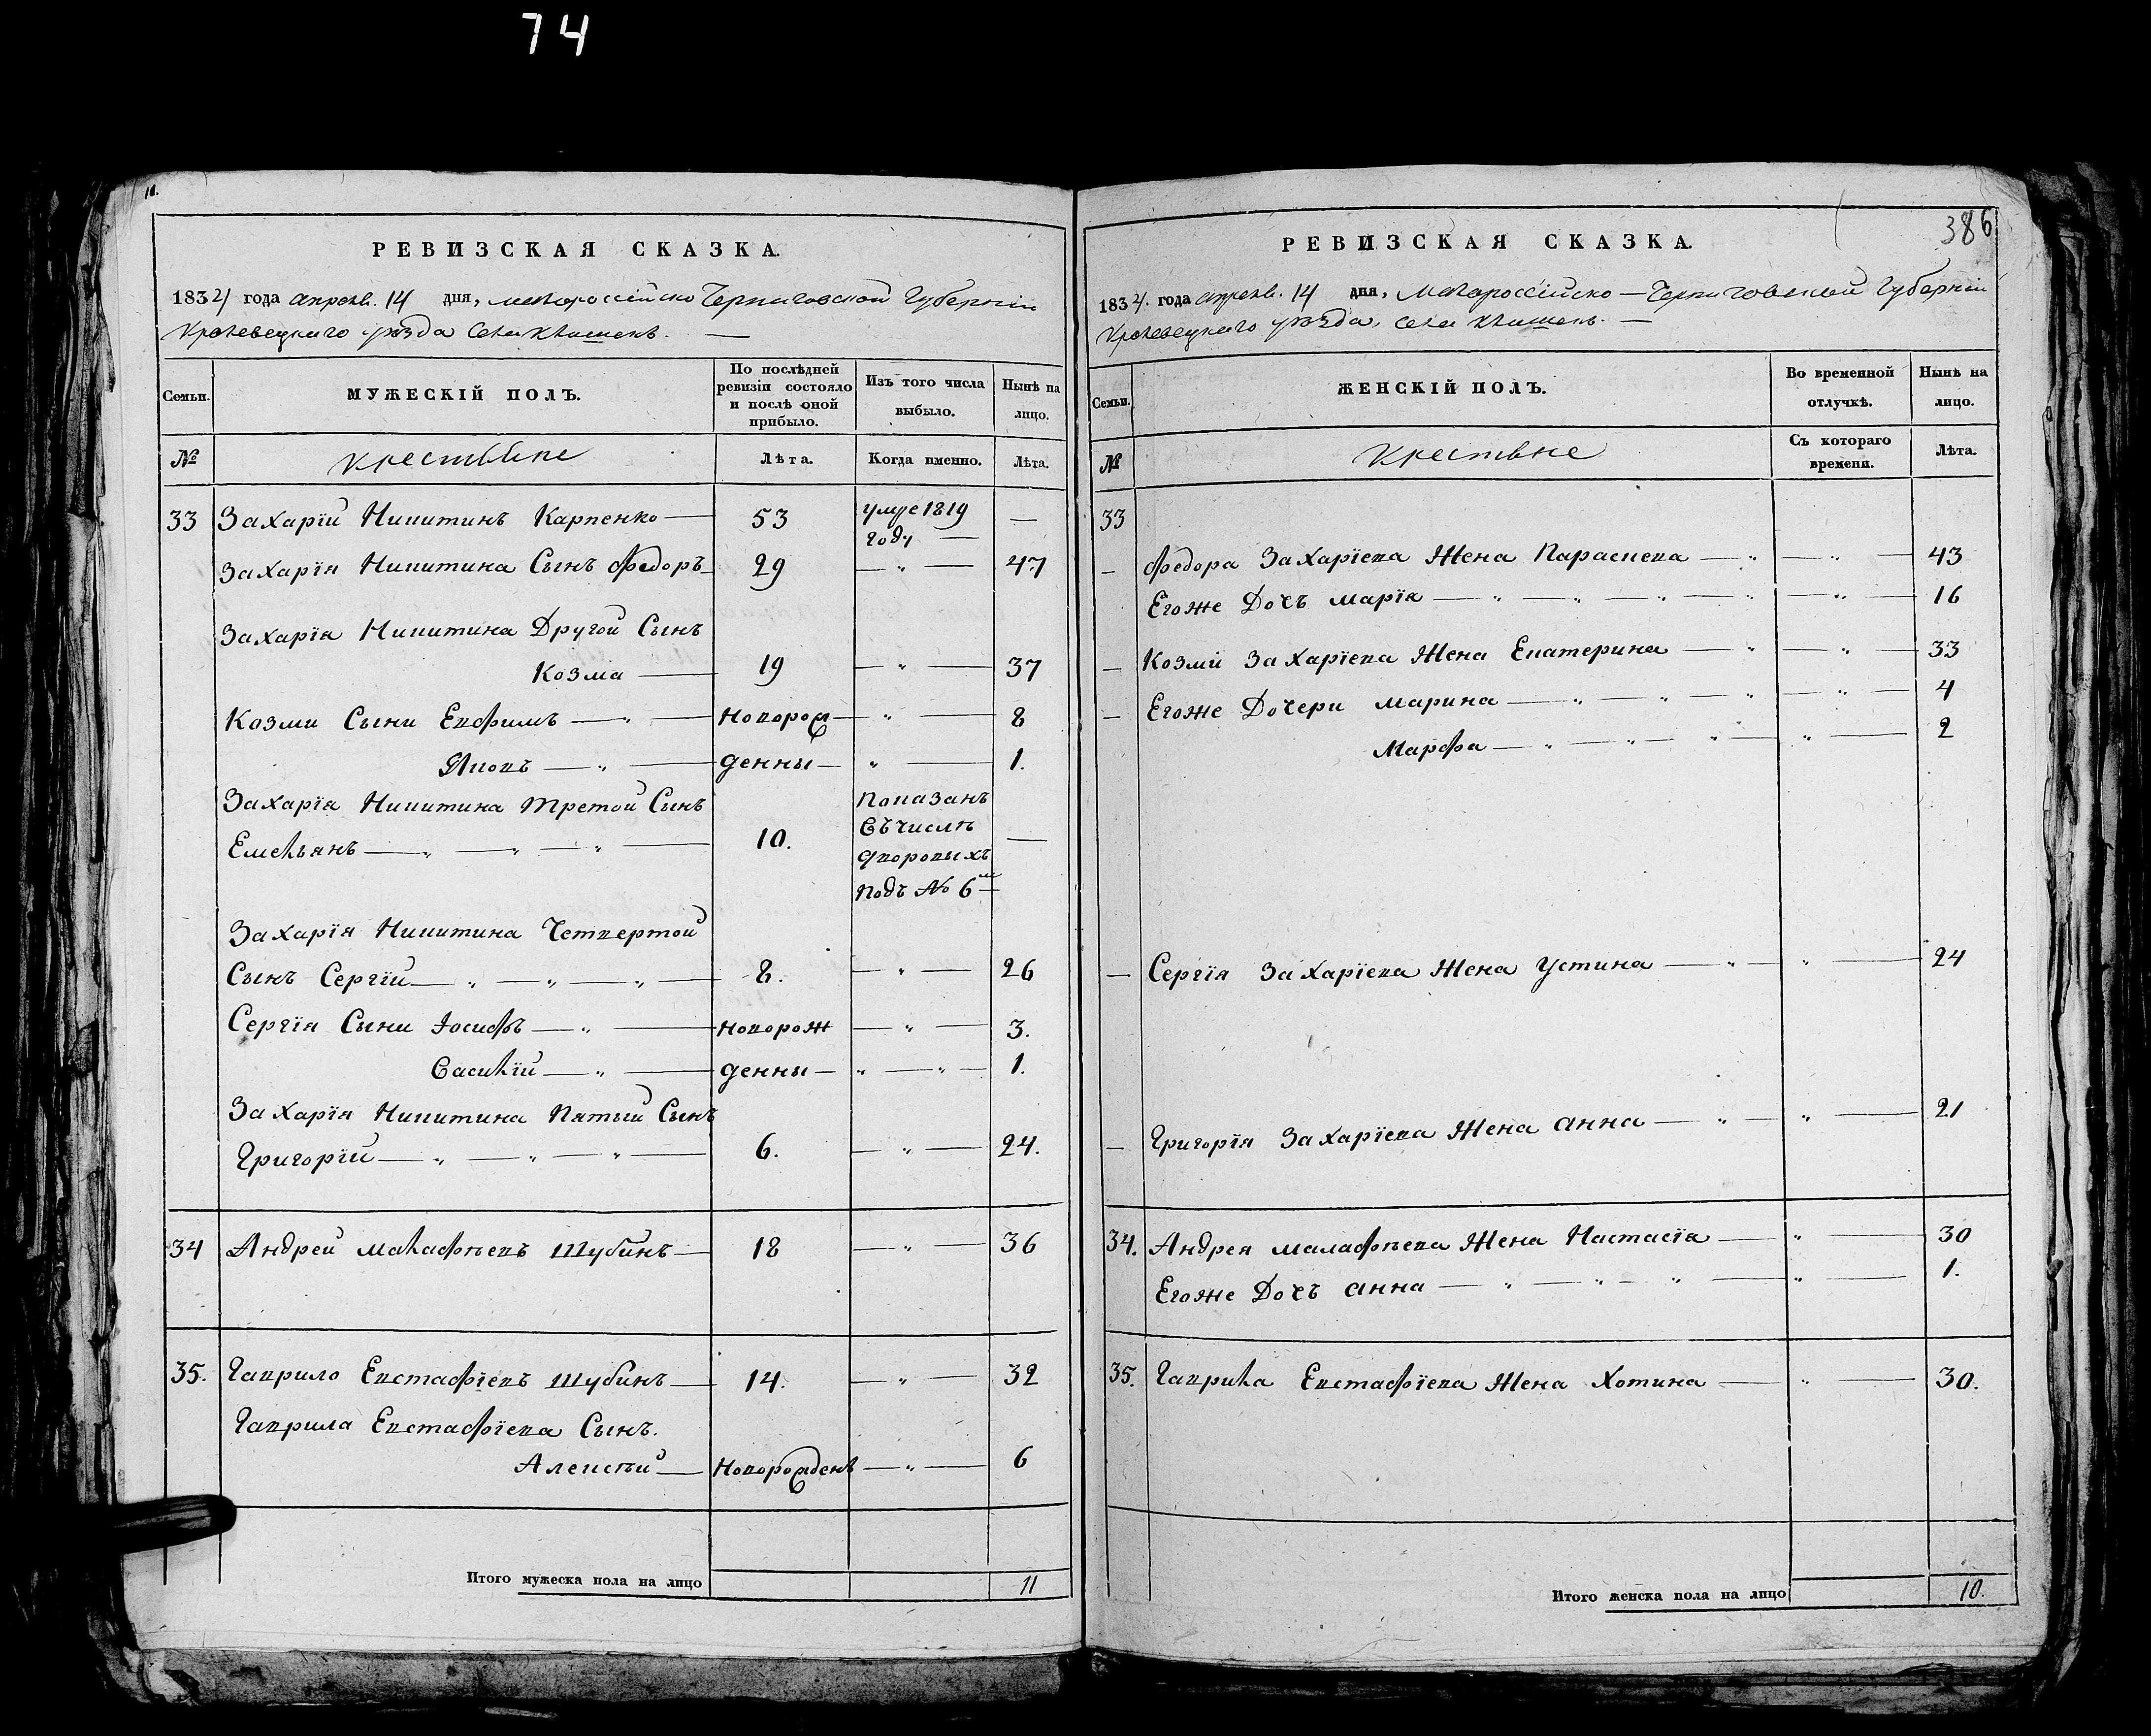 74
11.
РЕВИЗСКАЯ СКАЗКА.
1834 года апреля. 14 дня, малороссійско Черниговской Губерніи
Кролевецкаго уѣзда Села Клишекъ. —
Семьи. МУЖЕСКІЙ ПОЛЪ. По послѣдней ревизіи состояло и послѣ оной прибыло. Изъ того числа выбыло. Нынѣ на лицо.
№ Крестьяне Лѣта. Когда именно. Лѣта.
33 Захарій Никитинъ Карпенко — 53 умре 1819 году — —
Захарія Никитина Сынъ Федоръ — 29 — „ — 47
Захарія Никитина Другой Сынъ
Козма — 19 — „ — 37
Козми Сыни Евфимъ — „ — новорож — „ — 8
Яковъ — „ — денны — „ — 1.
Захарія Никитина Третой Сынъ
Емельянъ — „ — „ — „ — 10. Показанъ —
въ числѣ
дворовыхъ
подъ № 6 м
Захарія Никитина Четвертой
Сынъ Сергій — „ — „ — „ — 8. — „ — 26
Сергія Сыни Іосифъ — „ — новорож — „ — 3.
Василій — „ — денны — „ — „ — 1.
Захарія Никитина Пятый Сынъ
Григорій — „ — „ — „ — 6. — „ — 24.
34 Андрей Малафѣевъ Шубинъ — 18 — „ — 36
35. Гаврило Евстафіевъ Шубинъ — 14. — „ — 32
Гаврила Евстафіева Сынъ.
Алексѣй — Новорожденъ — „ — 6
Итого мужеска пола на лицо 11
386
РЕВИЗСКАЯ СКАЗКА.
1834. года апреля. 14 дня, Малороссійско — Черниговской Губерніи
Кролевецкаго уѣзда, Села Клишекъ. —
Семьи. ЖЕНСКІЙ ПОЛЪ. Во временной отлучкѣ. Нынѣ на лицо.
№ Крестьяне Съ котораго времени. Лѣта.
33
— Федора Захаріева Жена Параскева — „ — „ — 43
Егоже Дочъ Марія — „ — „ — „ — „ — „ — 16
— Козми Захаріева Жена Екатерина — „ — „ — 33
— Егоже Дочери Марина — „ — „ — „ — „ — 4
Марфа — „ — „ — „ — „ — 2
— Сергія Захаріева Жена Устина — „ — „ — 24
— Григорія Захаріева Жена Анна — „ — „ — 21
34. Андрея Малафѣева Жена Настасія — „ — 30
Егоже Дочъ Анна — „ — „ — „ — „ — 1.
35. Гаврила Евстафіева Жена Хотина — „ — 30.
Итого женска пола на лицо 10.